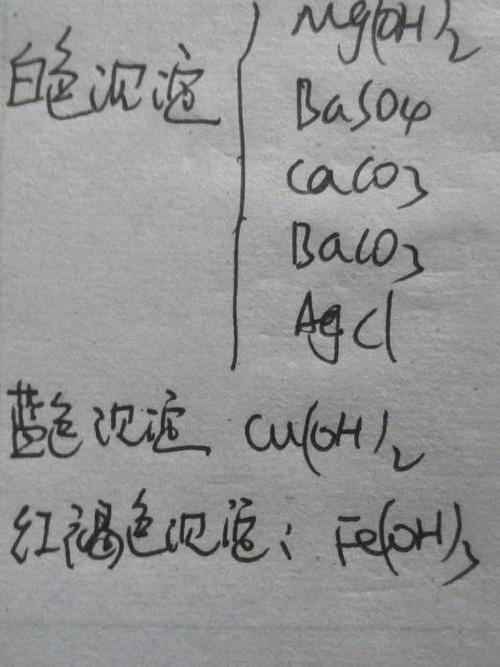 Mg(OH)2
白色沉淀
BaSO4
CaCO3
BaCO3
AgCl
蓝色沉淀 Cu(OH)2
红褐色沉淀: Fe(OH)3